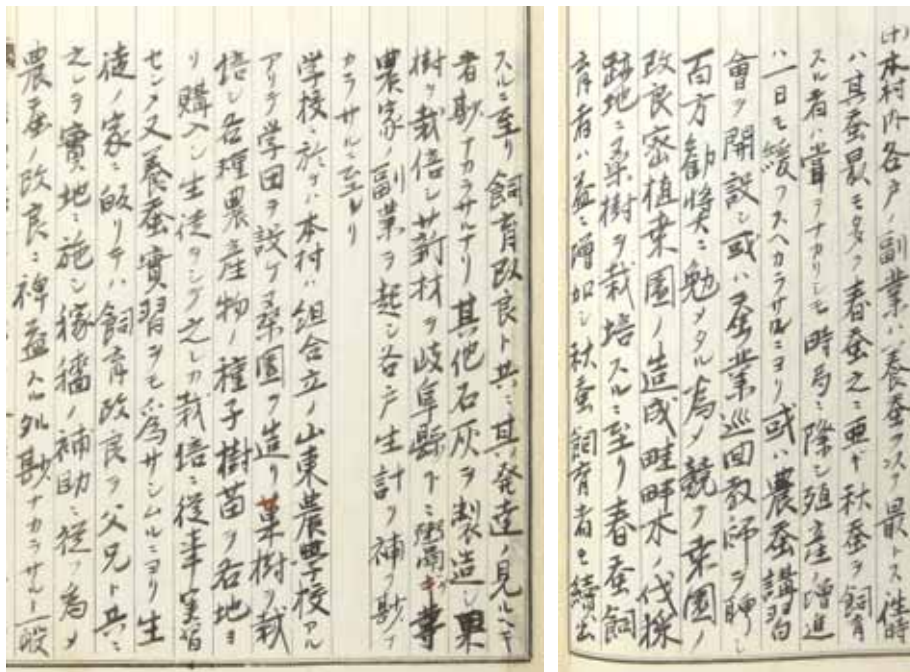 (十)本村内各戸ノ副業ハ養蚕ヲ以テ最トス往時
ハ其蚕最モ多ク春蚕之ニ亜ギ秋蚕ヲ飼育
スル者ハ嘗テナカリシモ時局ニ際シ殖産ノ増進
ハ一日モ緩フスヘカラサルニヨリ或ハ農蚕講習
會ヲ開設シ或ハ蚕業巡回教師ヲ聘シ
百方勧奨ニ勉メタル為メ競フテ桒園ノ
改良密植桒園ノ造成畦畔木ノ伐採
跡地ニ桒樹ヲ栽培スルニ至リ春蚕飼
育者ハ益々増加シ秋蚕飼育者モ續出
スルニ至リ飼育改良ト共ニ其発達ノ見ルヘキ
者尠ナカラサルナリ其他石灰ヲ製造シ果
樹ヲ栽倍シ薪材ヲ岐阜縣下ニ鬻キ等
農家ノ副業ヲ起シ各戸生計ヲ補フ尠ナ
カラサルニ至レリ
学校ニ於テハ本村ハ組合立ノ山東農學校アル
アリテ学田ヲ設ケ桒園ヲ造リ菓樹ヲ栽
培シ各種農産物ノ種子樹苗ヲ各地ヨ
リ購入シ生徒ヲシテ之レカ栽培ニ従事実習
センメ又養蚕實習ヲモ為サシムルニヨリ生
徒ノ家ニ皈リテハ飼育改良ヲ父兄ト共ニ
之レヲ實地ニ施シ稼穡ノ補助ニ従フ為メ
農蚕ノ改良ニ裨益スル処尠ナカラサル一般